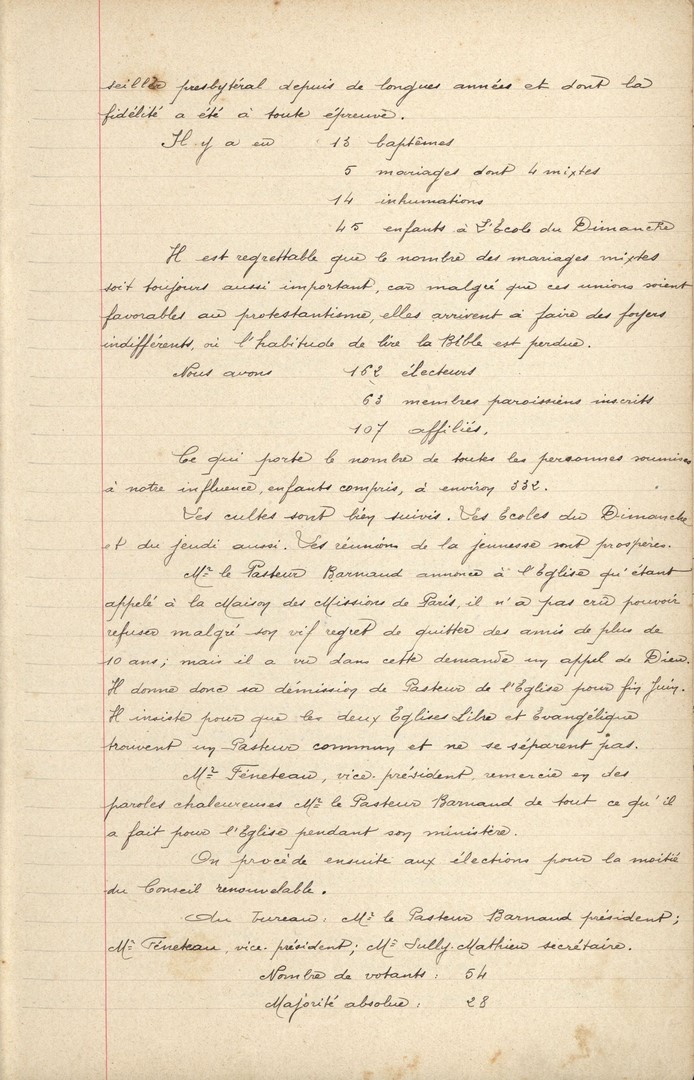 seiller presbytéral depuis de longues années et dont la
fidélité a été à toute épreuve.
Il y a eu 13 baptêmes
5 mariages dont 4 mixtes
14 inhumations
45 enfants à l'École du Dimanche
Il est regrettable que le nombre des mariages mixtes
soit toujours aussi important, car malgré que ces unions soient
favorables au protestantisme, elles arrivent à faire des foyers
indifférents, où l'habitude de lire la Bible est perdue.
Nous avons 162 électeurs
63 membres paroissiens inscrits
107 affiliés.
Ce qui porte le nombre de toutes les personnes soumises
à notre influence, enfants compris, à environ 332.
Les cultes sont bien suivis. Les Ecoles du Dimanche
et du jeudi aussi. Les réunions de la jeunesse sont prospères.
Mr le Pasteur Barnaud annonce à l'Eglise qu'étant
appelé à la Maison des Missions de Paris, il n'a pas cru pouvoir
refuser malgré son vif regret de quitter des amis de plus de
10 ans; mais il a vu dans cette demande un appel de Dieu.
Il donne donc sa démission de Pasteur de l'Eglise pour fin Juin.
Il insiste pour que les deux Eglises Libre et Evangélique
trouvent un Pasteur commun et ne se séparent pas.
Mr Féneteau, vice-président, remercie en des
paroles chaleureuses Mr le Pasteur Barnaud de tout ce qu'il
a fait pour l'Eglise pendant son ministère.
On procède ensuite aux élections pour la moitié
du Conseil renouvelable.
Au Bureau: Mr le Pasteur Barnaud président;
Mr Féneteau, vice-président; Mr Sully-Mathieu secrétaire.
Nombre de votants: 54
Majorité absolue: 28